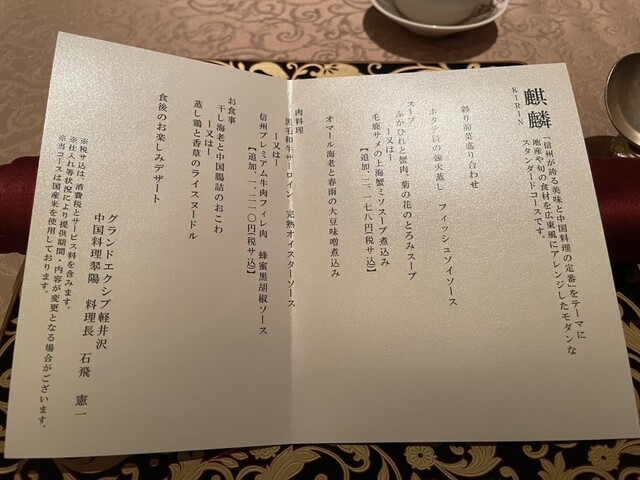 麒麟
KIRIN
「信州が誇る美味と中国料理の定番」をテーマに
地産や旬の食材を広東風にアレンジしたモダンな
スタンダードコースです。
彩り前菜盛り合わせ
ホタテ貝の強火蒸し　フィッシュソイソース
スープ
ふかひれと蟹肉、菊の花のとろみスープ
―又は―
毛鹿サメの上海蟹ミソスープ煮込み
【追加二、一七八円(税サ込)】
オマール海老と春雨の大豆味噌煮込み
肉料理
黒毛和牛サーロイン　完熟オイスターソース
―又は―
信州プレミアム牛肉フィレ肉　蜂蜜黒胡椒ソース
【追加一、二一〇円(税サ込)】
お食事
干し海老と中国腸詰のおこわ
―又は―
蒸し鶏と香草のライスヌードル
食後のお楽しみデザート
※税サ込は、消費税とサービス料を含みます。
※仕入れ等状況により提供期間・内容が変更となる場合がございます。
※当コースは国産米を使用しております。
グランドエクシブ軽井沢
中国料理翠陽　料理長　石飛　憲一